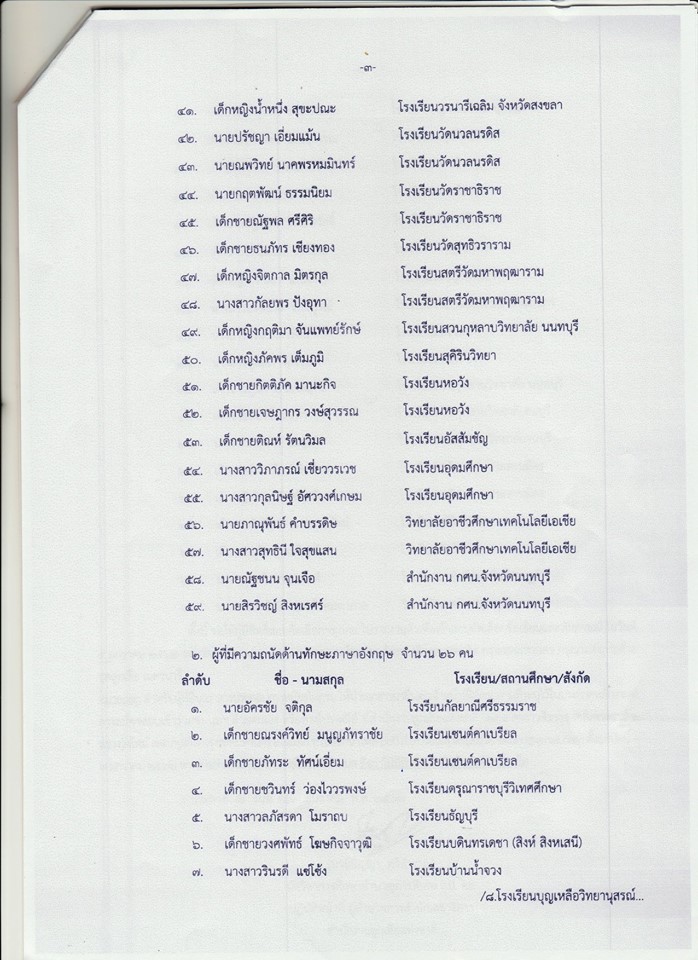 -๓-
๔๑. เด็กหญิงน้ำหนึ่ง สุขะปณะ โรงเรียนวรนารีเฉลิม จังหวัดสงขลา
๔๒. นายปรัชญา เอี่ยมแม้น โรงเรียนวัดนวลนรดิส
๔๓. นายณพวิทย์ นาคพรหมมินทร์ โรงเรียนวัดนวลนรดิส
๔๔. นายกฤตพัฒน์ ธรรมนิยม โรงเรียนวัดราชาธิวาช
๔๕. เด็กชายณัฐพล ศรีศิริ โรงเรียนวัดราชาธิราช
๔๖. เด็กชายธนภัทร เชียงทอง โรงเรียนวัดสุทธิวราราม
๔๗. เด็กหญิงจิตกาล มิตรกุล โรงเรียนสตรีวัดมหาพฤฒาราม
๔๘. นางสาวกัลยพร ปังอุทา โรงเรียนสตรีวัดมหาพฤฒาราม
๔๙. เด็กหญิงกฤติมา จันแพทย์รักษ์ โรงเรียนสวนกุหลาบวิทยาลัย นนทบุรี
๕๐. เด็กหญิงภัคพร เต็มภูมิ โรงเรียนสุคิรินวิทยา
๕๑. เด็กชายกิตติภัค มานะกิจ โรงเรียนหอวัง
๕๒. เด็กชายเจษฎากร วงษ์สุวรรณ โรงเรียนหอวัง
๕๓. เด็กชายติณห์ รัตนวิมล โรงเรียนอัสสัมชัญ
๕๔. นางสาววิภาภรณ์ เชี่ยววรเวช โรงเรียนอุดมศึกษา
๕๕. นางสาวกุลนิษฐ์ อัศววงศ์เกษม โรงเรียนอุดมศึกษา
๕๖. นายภาณุพันธ์ คำบรรดิษ วิทยาลัยอาชีวศึกษาเทคโนโลยีเอเชีย
๕๗. นางสาวสุทธินี ใจสุขแสน วิทยาลัยอาชีวศึกษาเทคโนโลยีเอเชีย
๕๘. นายณัฐชนน จุนเจือ สำนักงาน กศน.จังหวัดนนทบุรี
๕๙. นายสิรวิชญ์ สิงหเรศร์ สำนักงาน กศน.จังหวัดนนทบุรี
๒. ผู้ที่มีความถนัดด้านทักษะภาษาอังกฤษ จำนวน ๒๖ คน
ลำดับ ชื่อ - นามสกุล โรงเรียน/สถานศึกษา/สังกัด
๑. นายอัครชัย จติกุล โรงรียนกัลยาณีศรีธรรมราช
๒. เด็กชายณรงค์วิทย์ มนูญภัทราชัย โรงเรียนเซนต์คาเบรียล
๓. เด็กชายภัทระ ทัศน์เอี่ยม โรงเรียนเซนต์คาเบรียล
๔. เด็กชายชวินทร์ ว่องไววรพงษ์ โรงเรียนดรุณาราชบุรีวิเทศศึกษา
๕. นางสาวลภัสรดา โมราถบ โรงเรียนธัญบุรี
๖. เด็กชายวงศพัทธ์ โฆษกิจจาวุฒิ โรงเรียนบดินทรเดชา (สิงห์ สิงหเสนี)
๗. นางสาวรินรดี แซ่โซ้ง โรงเรียนบ้านน้ำจวง
/๘.โรงเรียนบุญเหลือวิทยานุสรณ์...